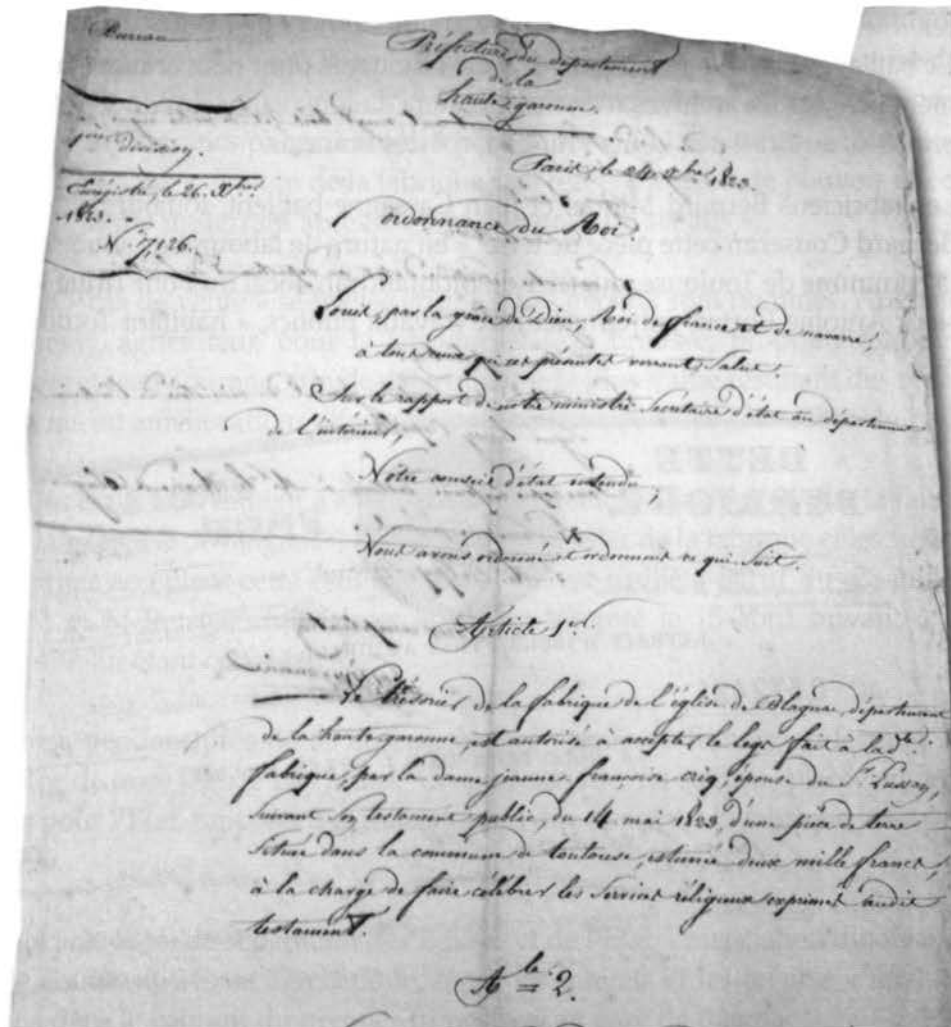 Bureau
Préfecture du département
de la
haute garonne.
division.
Paris, le 24 xbre 1823.
Enregistré, le 26. Xbre
1823.
N° 7126.
ordonnance du Roi.
Louis, par la grâce de Dieu, Roi de france et de navarre,
à tous ceux qui ces présentes verront, Salut.
Sur le rapport de notre ministre Secrétaire d'état au département
de l'intérieur,
Notre conseil d'état entendu,
Nous avons ordonné et ordonnons ce qui Suit.
Article 1er.
Le trésorier de la fabrique de l'église de Blagnac, département
de la haute garonne, est autorisé à accepter le legs fait à la dte.
fabrique, par la dame jeanne françoise criq, épouse du Sr. Lussay,
Suivant Son testament public, du 14 mai 1823, d'une pièce de terre
Située dans la commune de toulouse, estimée deux mille francs,
à la charge de faire célébrer les Services réligieux exprimés audit
testament.
Ale. 2.